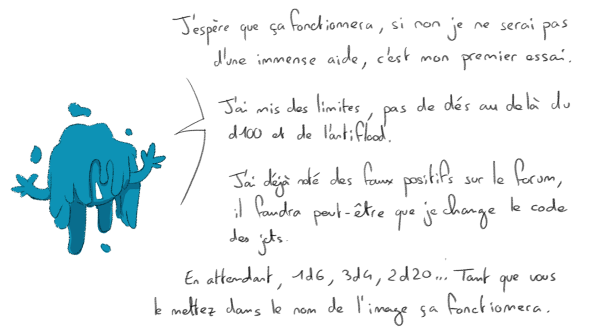 J'espère que ça fonctionnera, si non je ne serai pas
d'une immense aide, c'est mon premier essai.
J'ai mis des limites, pas de dés au delà du
d100 et de l'antiflood.
J'ai déjà noté des faux positifs sur le forum,
il faudra peut-être que je change le code
des jets.
En attendant, 1d6, 3d4, 2d20... Tant que vous
le mettez dans le nom de l'image ça fonctionnera.